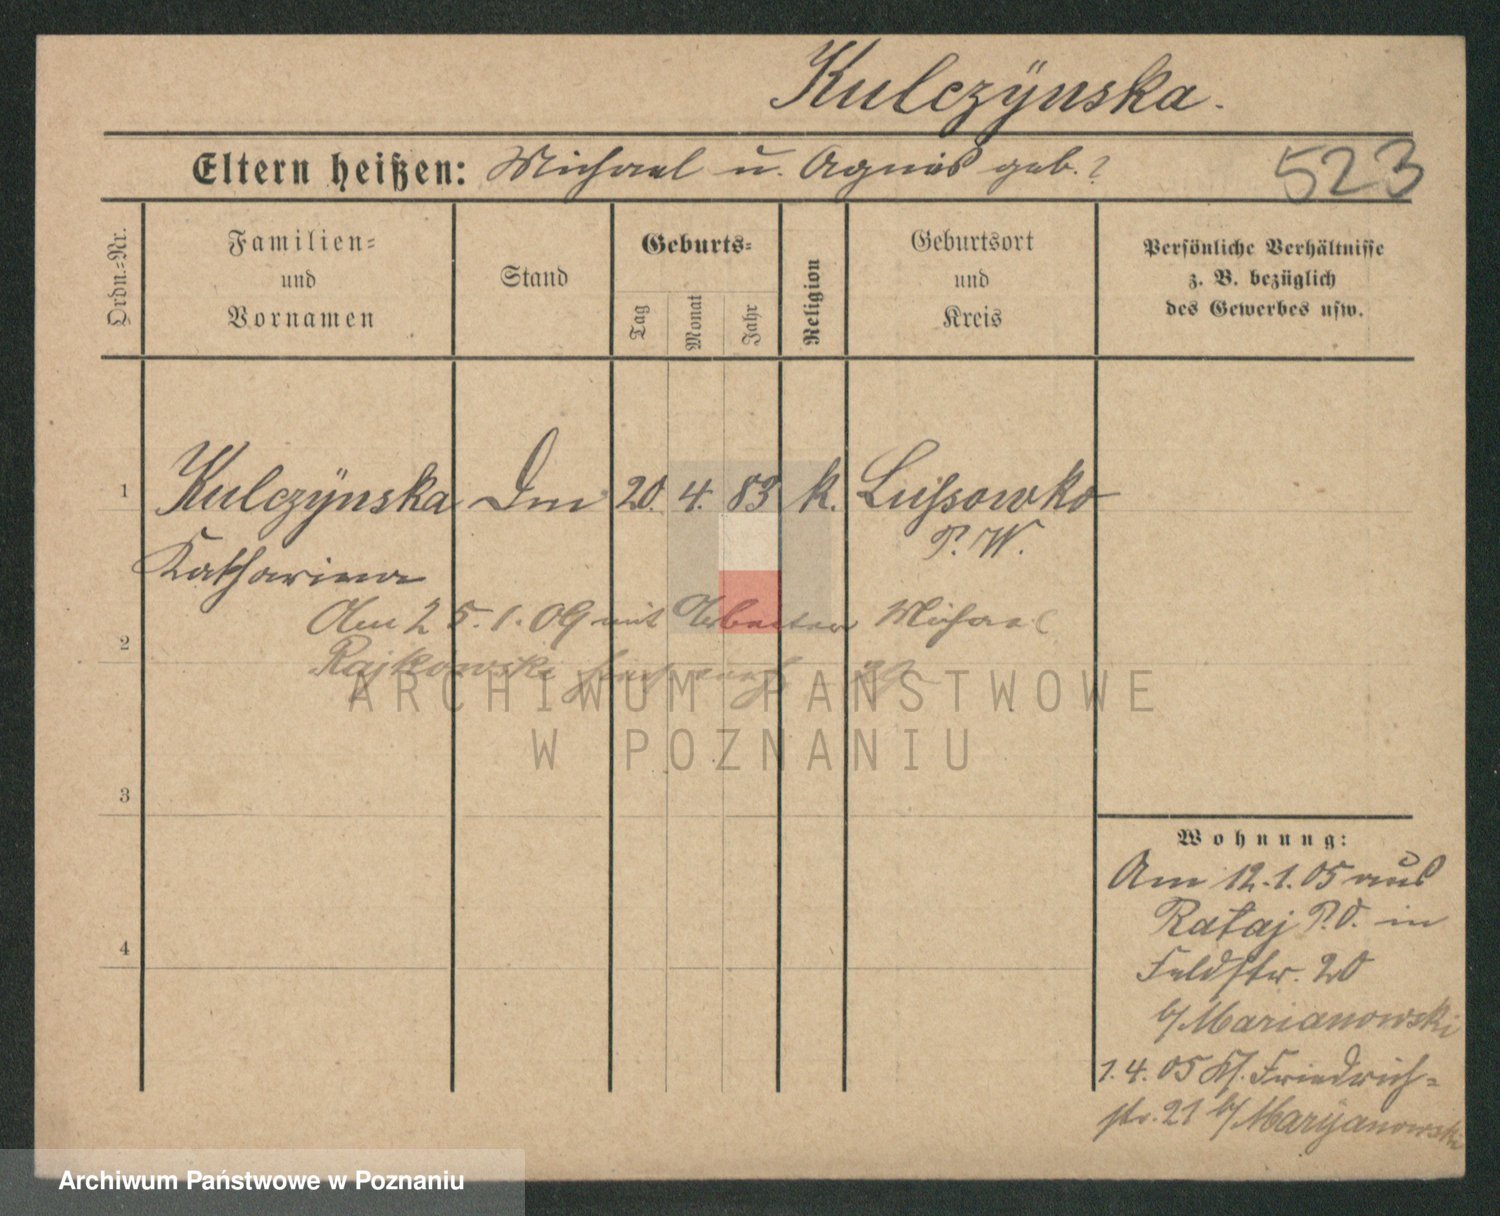 Kulczÿnska.
Eltern heißen: Michael u. Agnes geb. ?
523
Ordn.=Nr.
Familien=
und
Vornamen
Stand
Geburts=
Tag
Monat
Jahr
Religion
Geburtsort
und
Kreis
Persönliche Verhältnisse
z. B. bezüglich
des Gewerbes usw.
1 Kulczÿnska 20. 4. 83 k. Lussowko
Katharina P. W.
Am 25.1.09 mit Arbeiter Michael
2
Rajkowski
3
4
Wohnung:
Am 12.1.05 aus
Rataj P.O. in
Feldstr. 20
b/ Marianowski
1.4.05 Kl. Friedrich=
str. 21 b/ Marÿanowski
ARCHIWUM PAŃSTWOWE
W POZNANIU
Archiwum Państwowe w Poznaniu